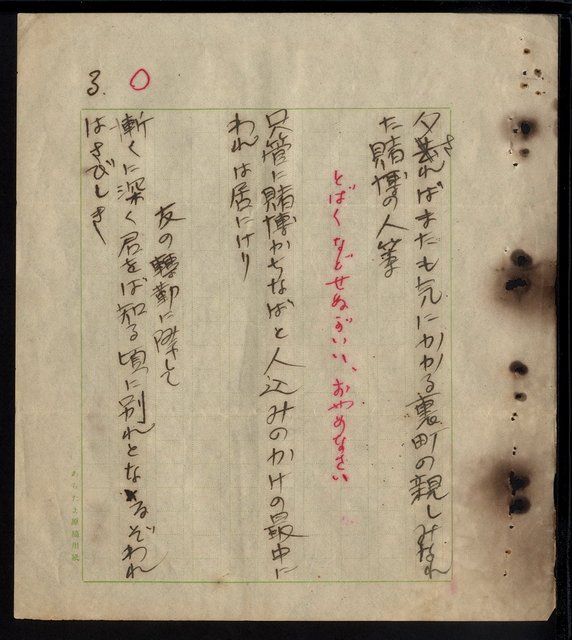 夕暮さればまたも気にかかる裏町の親しみなれ
た賭博の人等
とばくなどせぬがいい、おやめなさい
只管に賭博かちなばと人込みのかけの最中に
われは居にけり
友の轉勤に際して
漸くに深く君をば知る頃に別れとなるぞわれ
はさびしき
3.
あらたま原稿用紙